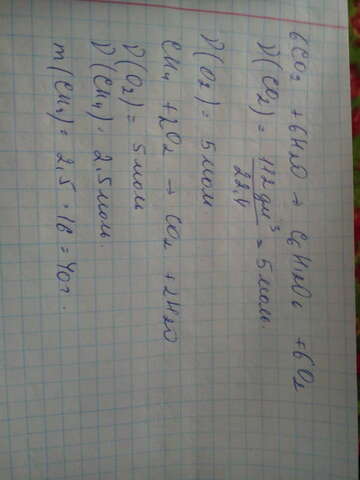 6CO₂ + 6H₂O → C₆H₁₂O₆ + 6O₂
ν(CO₂) = 112 дм³ / 22,4 = 5 моль.
ν(O₂) = 5 моль.
CH₄ + 2O₂ → CO₂ + 2H₂O
ν(O₂) = 5 моль
ν(CH₄) = 2,5 моль.
m(CH₄) = 2,5 · 16 = 40г.